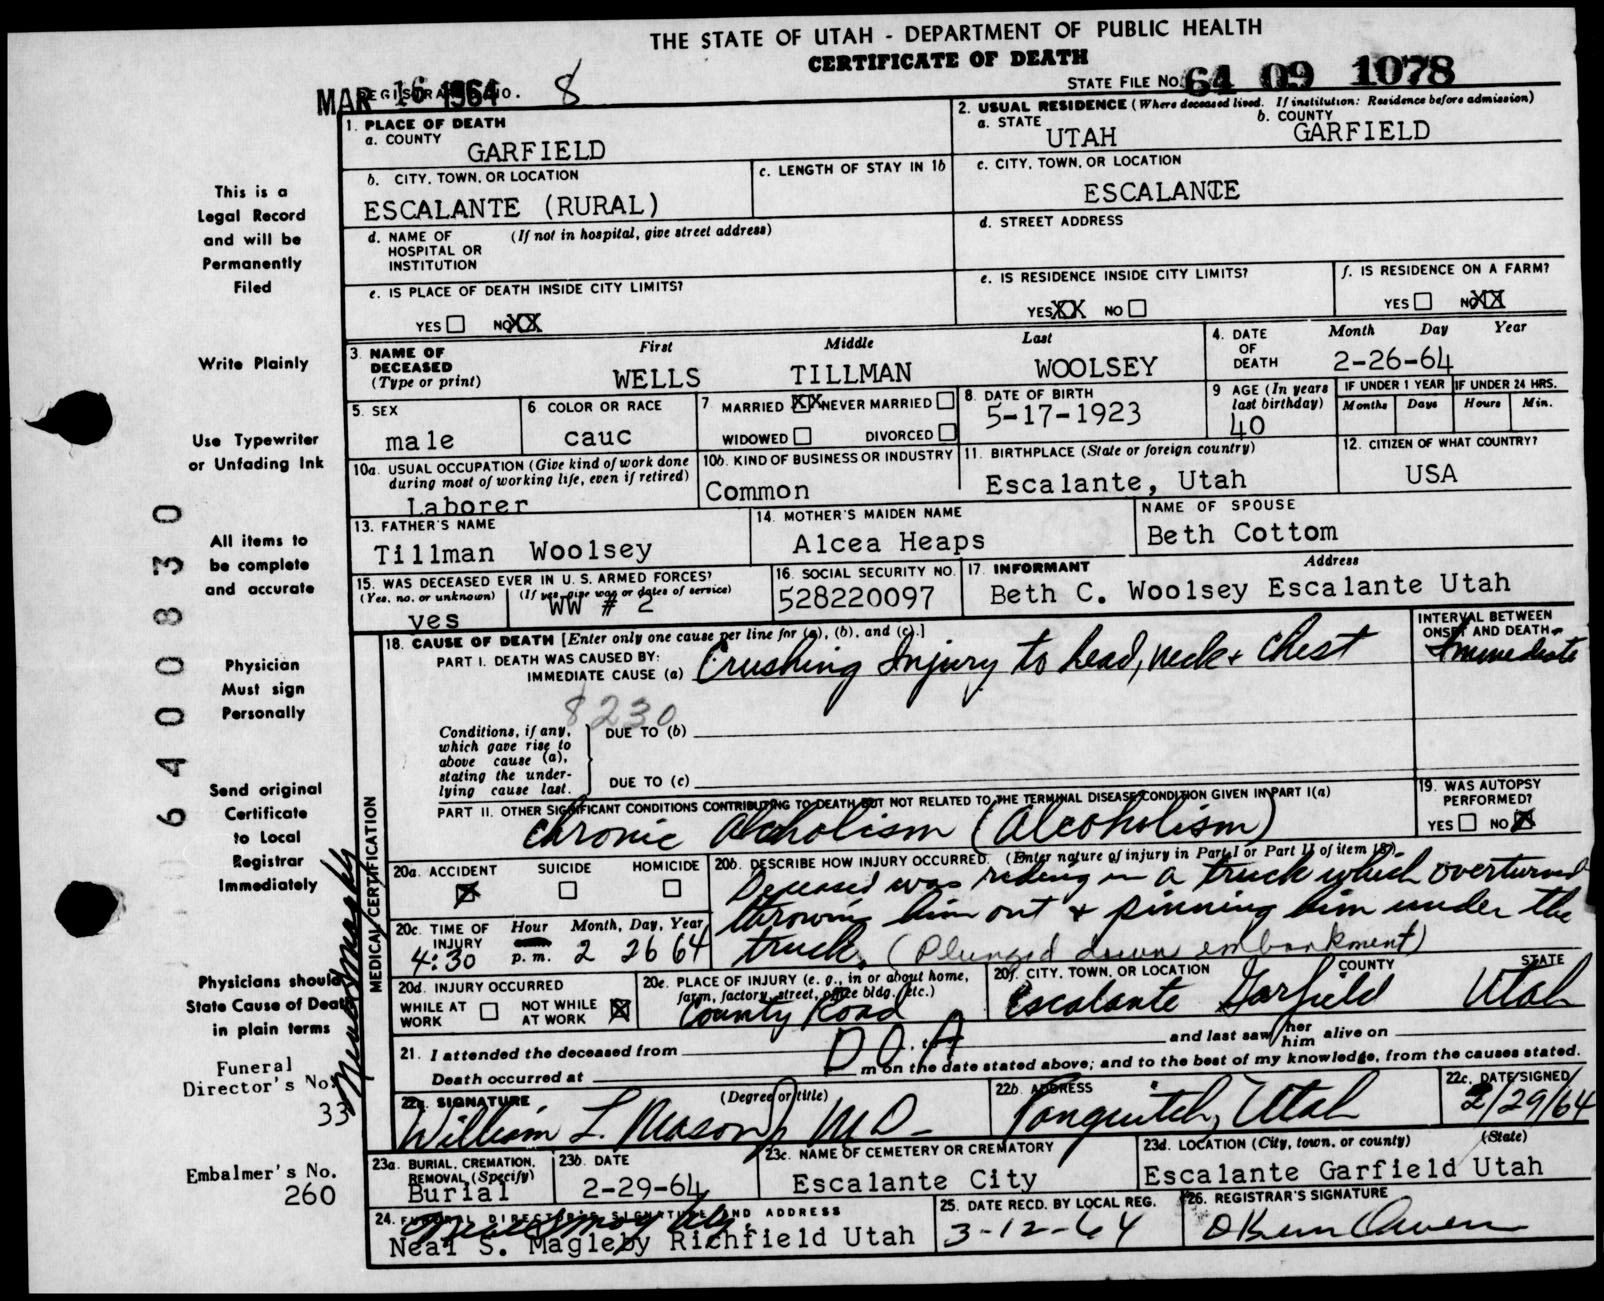 THE STATE OF UTAH - DEPARTMENT OF PUBLIC HEALTH
CERTIFICATE OF DEATH
MAR 16 1964
REGISTRAR'S NO. 8
STATE FILE NO. 64 09 1078
1. PLACE OF DEATH
a. COUNTY
GARFIELD
2. USUAL RESIDENCE (Where deceased lived. If institution: Residence before admission)
a. STATE
UTAH
b. COUNTY
GARFIELD
b. CITY, TOWN, OR LOCATION
ESCALANTE (RURAL)
c. LENGTH OF STAY IN 1b
c. CITY, TOWN, OR LOCATION
ESCALANTE
d. NAME OF HOSPITAL OR INSTITUTION
(If not in hospital, give street address)
d. STREET ADDRESS
e. IS PLACE OF DEATH INSIDE CITY LIMITS?
YES NO XX
e. IS RESIDENCE INSIDE CITY LIMITS?
YES XX NO
f. IS RESIDENCE ON A FARM?
YES NO XX
3. NAME OF DECEASED
(Type or print)
First Middle Last
WELLS TILLMAN WOOLSEY
4. DATE OF DEATH
Month Day Year
2-26-64
5. SEX
male
6 COLOR OR RACE
cauc
7 MARRIED XX NEVER MARRIED
WIDOWED DIVORCED
8. DATE OF BIRTH
5-17-1923
9 AGE (In years last birthday)
40
IF UNDER 1 YEAR
Months Days
IF UNDER 24 HRS.
Hours Min.
10a. USUAL OCCUPATION (Give kind of work done during most of working life, even if retired)
Laborer
10b. KIND OF BUSINESS OR INDUSTRY
Common
11. BIRTHPLACE (State or foreign country)
Escalante, Utah
12. CITIZEN OF WHAT COUNTRY?
USA
13. FATHER'S NAME
Tillman Woolsey
14. MOTHER'S MAIDEN NAME
Alcea Heaps
NAME OF SPOUSE
Beth Cottom
15. WAS DECEASED EVER IN U. S. ARMED FORCES?
(Yes, no, or unknown) (If yes, give war or dates of service)
yes WW # 2
16. SOCIAL SECURITY NO.
528220097
17. INFORMANT Address
Beth C. Woolsey Escalante Utah
18. CAUSE OF DEATH [Enter only one cause per line for (a), (b), and (c).]
INTERVAL BETWEEN ONSET AND DEATH
PART I. DEATH WAS CAUSED BY:
IMMEDIATE CAUSE (a) Crushing Injury to head, neck + chest
Immediate
8230
Conditions, if any, which gave rise to above cause (a), stating the underlying cause last.
DUE TO (b)
DUE TO (c)
PART II. OTHER SIGNIFICANT CONDITIONS CONTRIBUTING TO DEATH BUT NOT RELATED TO THE TERMINAL DISEASE CONDITION GIVEN IN PART I(a)
Chronic Alcholism (Alcoholism)
19. WAS AUTOPSY PERFORMED?
YES NO X
MEDICAL CERTIFICATION
20a. ACCIDENT SUICIDE HOMICIDE
X
20b. DESCRIBE HOW INJURY OCCURRED. (Enter nature of injury in Part I or Part II of item 18.)
Deceased was riding in a truck which overturned
throwing him out + pinning him under the
truck. (Plunged down embankment)
20c. TIME OF INJURY
Hour Month, Day, Year
4:30 p. m. 2 26 64
20d. INJURY OCCURRED
WHILE AT WORK NOT WHILE AT WORK X
20e. PLACE OF INJURY (e. g., in or about home, farm, factory, street, office bldg. etc.)
County Road
20f. CITY, TOWN, OR LOCATION COUNTY STATE
Escalante Garfield Utah
21. I attended the deceased from to and last saw her/him alive on
D O A
Death occurred at m on the date stated above; and to the best of my knowledge, from the causes stated.
22a. SIGNATURE (Degree or title)
William L. Mason Jr M D
22b. ADDRESS
Panguitch, Utah
22c. DATE SIGNED
2/29/64
23a. BURIAL, CREMATION, REMOVAL (Specify)
Burial
23b. DATE
2-29-64
23c. NAME OF CEMETERY OR CREMATORY
Escalante City
23d. LOCATION (City, town, or county) (State)
Escalante Garfield Utah
24. FUNERAL DIRECTOR'S SIGNATURE AND ADDRESS
Neal S. Magleby
Neal S. Magleby Richfield Utah
25. DATE RECD. BY LOCAL REG.
3-12-64
26. REGISTRAR'S SIGNATURE
This is a
Legal Record
and will be
Permanently
Filed
Write Plainly
Use Typewriter
or Unfading Ink
All items to
be complete
and accurate
Physician
Must sign
Personally
Send original
Certificate
to Local
Registrar
Immediately
Physicians should
State Cause of Death
in plain terms
Funeral
Director's No.
33
Embalmer's No.
260
Neal S Magleby
6400830